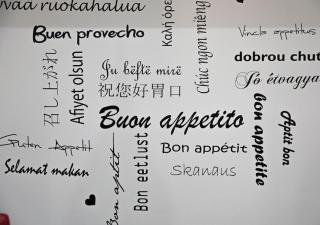 vää ruokahalua
Buen provecho
Καλή όρε
Chúc ngon miệng
Vincls appetitus
dobrou chut
Jó étvágya
召し上がれ
Afiyet olsun
Ju bëftë mirë
祝您好胃口
Buon appetito
bon appetite
Aptit bon
Guten Appetit
Selamat makan
aptit
Bon eetlust
Bon appétit
Skanaus